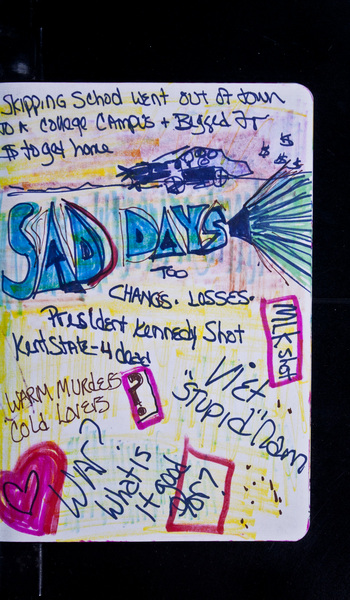 Skipping School went out of town
to a College Campus + Begged for
$ to get home
$ $
$ $ $
SAD DAYS
TOO
CHANGES. LOSSES.
President Kennedy Shot
MLK Shot
Kent State - 4 dead
Viet
"Stupid" Nam
WARM MURDERS
"COLD LOVERS
?
WAR?
What is
it good
for?